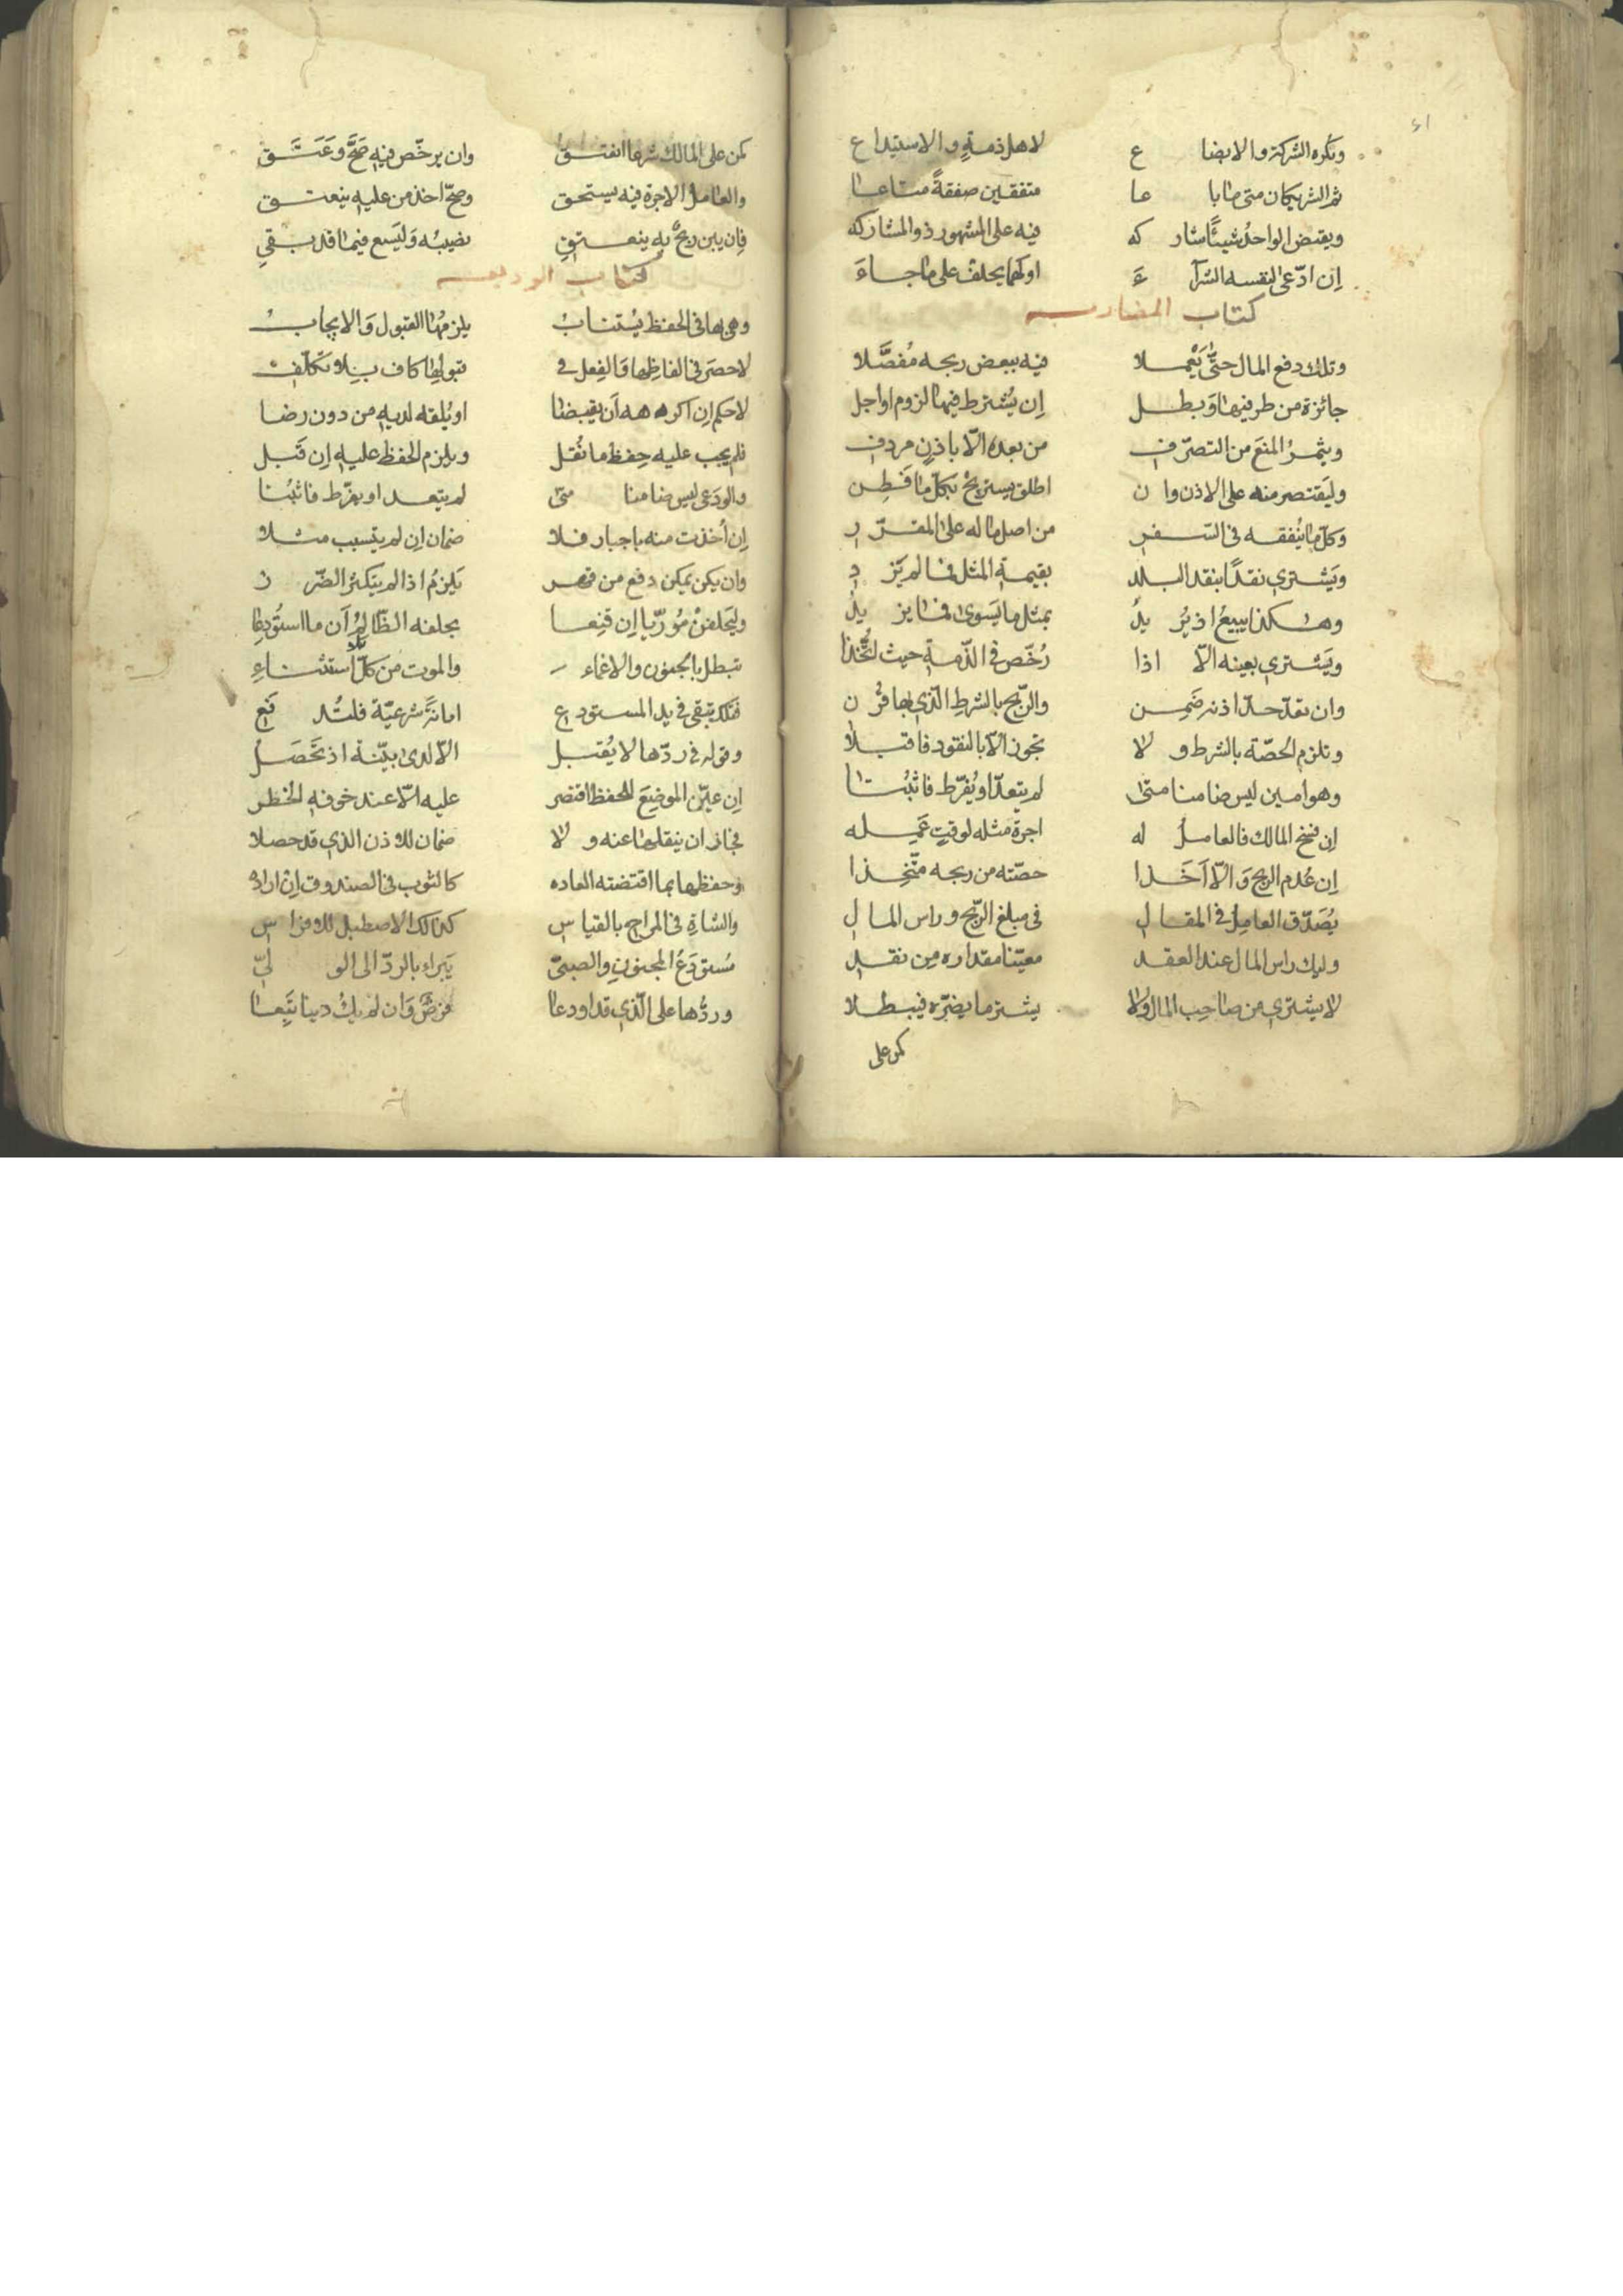 وتكره الشركة والابضاع لاهل ذمة والاستيداع
ثم الشريكان متى ما باعا متفقين صفقة متاعا
ويقبض الواحد شيئا شاركه فيه على المشهور ذو المشاركه
ان ادعى لنفسه الشرآء او لهما يحلف على ما جاء
كتاب المضاربه
وتلك دفع المال حتى يعملا فيه ببعض ربحه مفصلا
جائزة من طرفيها وبطل ان يشترط فيها لزوم او اجل
ويثمر المنع من التصرف من بعده الا باذن مردف
وليقتصر منه على الاذن وان اطلق يستربح بكل ما فطن
وكل ما ينفقه في السفر من اصل ماله على المقرر
ويشتري نقدا بنقد البلد بقيمة المثل فما لم يزد
وهكذا يبيع اذ يريد بمثل ما يسوى فما يزيد
ويشتري بعينه الا اذا رخص في الذمة حيث اتخذا
وان تعد حد اذنه ضمن والربح بالشرط الذي بها قرن
وتلزم الحصة بالشرط ولا تجوز الا بالنقود فاقبلا
وهو امين ليس ضامنا متى لم يتعد او يفرط فاثبتا
ان فسخ المالك فالعامل له اجرة مثله لوقت عمله
ان عدم الربح والا اخذا حصته من ربحه متخذا
يصدق العامل في المقال في مبلغ الربح وراس المال
وليك راس المال عند العقد معينا مقداره من نقد
لا يشتري من صاحب المال ولا يشتر ما يضره فيبطلا
كمن على
كمن على المالك شرعا انعتق وان يرخص فيه صح وعتق
والعامل الاجرة فيه يستحق وصح اخذ من عليه ينعتق
فان يبن ربح به ينعتق نصيبه وليسع فيما قد بقي
كتاب الوديعه
وهي بها في الحفظ يستناب يلزمها القبول والايجاب
لا حصر في الفاظها والفعل في قبولها كاف بلا تكلف
لا حكم ان اكرهه ان يقبضا او يلقه لديه من دون رضا
فلم يجب عليه حفظ ما نقل ويلزم الحفظ عليه ان قبل
والودعي ليس ضامنا متى لم يتعد او يفرط فاثبتا
ان اخذت منه باجبار فلا ضمان ان لم يتسبب مثلا
وان يكن يمكن دفع من قهر يلزم اذا لم يتكثر الضرر
وليحلفن موريا ان قنعا بحلفه الظالم ان ما استودعا
تبطل بالجنون والاغماء والموت من كل بلا استثناء
فتلك تبقى في يد المستودع امانة شرعية فلتدفع
وقوله في ردها لا يقبل الا لدى بينة اذ تحصل
ان عين الموضع للحفظ اقتصر عليه الا عند خوفه الخطر
فجاز ان ينقلها عنه ولا ضمان للاذن الذي قد حصلا
وحفظها بما اقتضته العاده كالثوب في الصندوق ان اراده
والشاة في المراح بالقياس كذلك الاصطبل للافراس
مستودع المجنون والصبي يبراء بالرد الى الولي
وردها على الذي قد اودعا فرض وان لم يك دينا تبعا